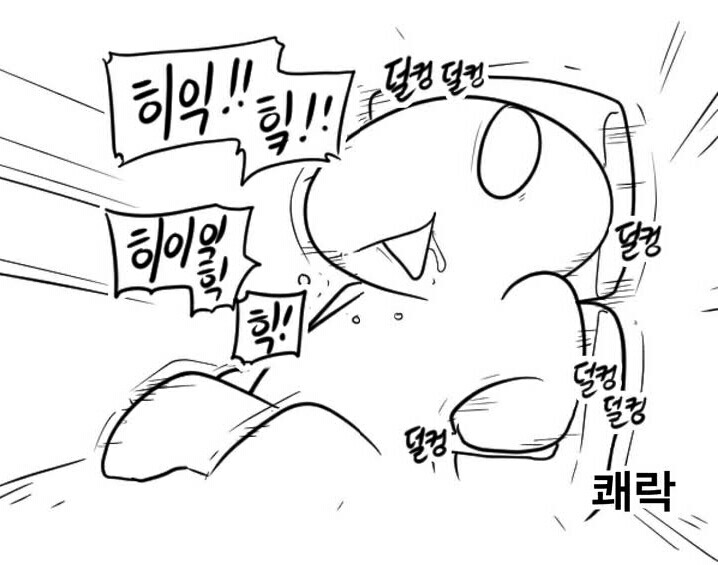 히익!!
힉!!
덜컹 덜컹
히이익
힉
힉!
덜컹
덜컹
덜컹
덜컹
쾌락